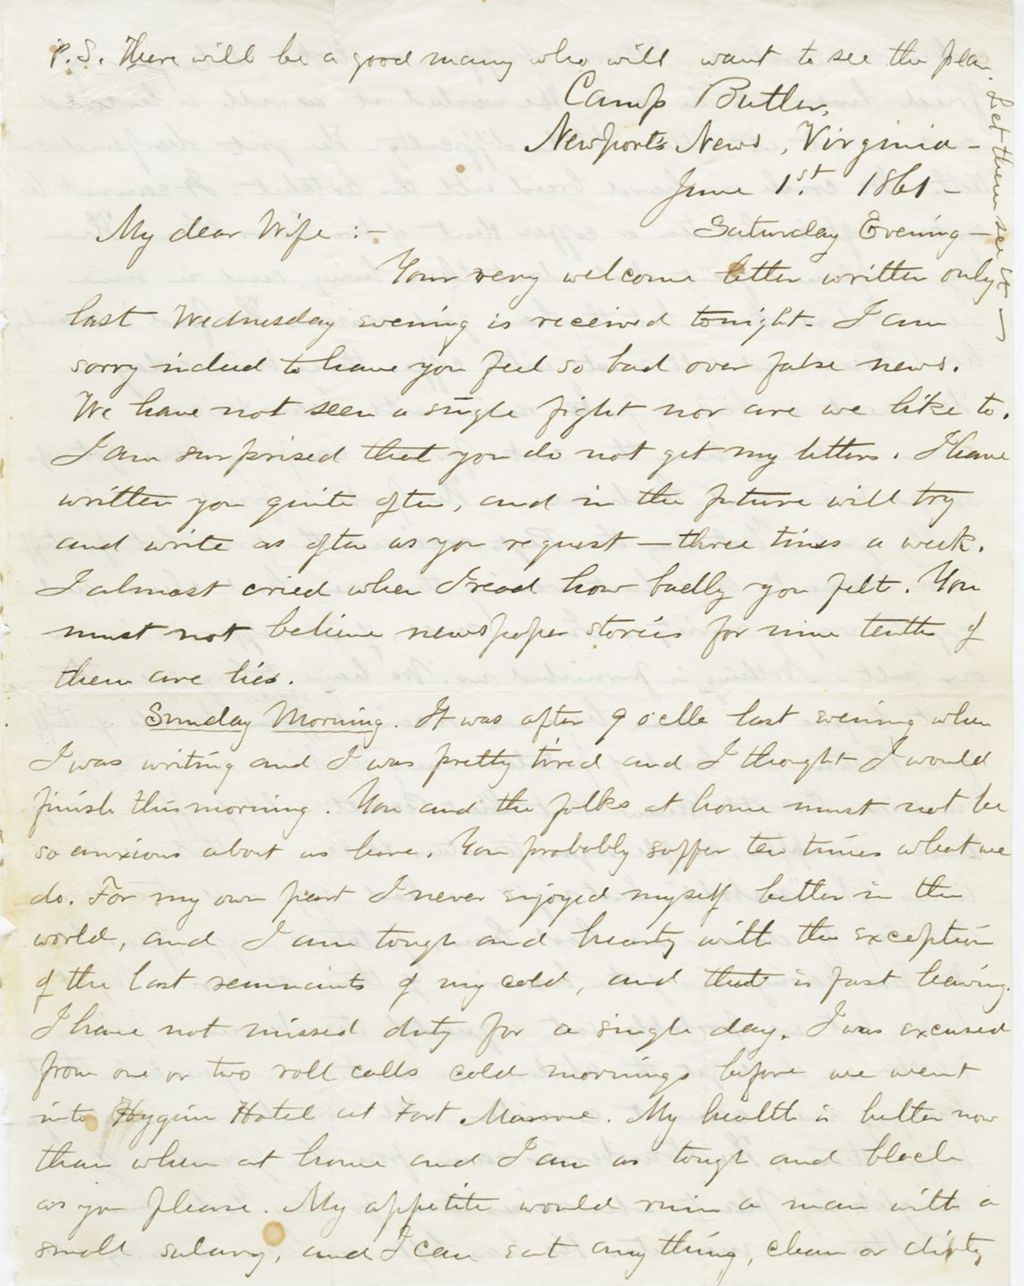 P.S. There will be a good many who will want to see the plan.
Let them see it —
Camp Butler,
Newports News, Virginia —
June 1st. 1861 —
My dear Wife :— Saturday Evening —
Your very welcome letter written only
last Wednesday evening is received tonight. I am
sorry indeed to have you feel so bad over false news.
We have not seen a single fight nor are we like to.
I am surprised that you do not get my letters. I have
written you quite often, and in the future will try
and write as often as you request — three times a week.
I almost cried when I read how badly you felt. You
must not believe newspaper stories for nine tenths of
them are lies.
Sunday Morning. It was after 9 o'clk last evening when
I was writing and I was pretty tired and I thought I would
finish this morning. You and the folks at home must not be
so anxious about us here. You probably suffer ten times what we
do. For my own part I never enjoyed myself better in the
world, and I am tough and hearty with the exception
of the last remnants of my cold, and that is fast leaving.
I have not missed duty for a single day. I was excused
from one or two roll calls cold mornings before we went
into Hygein Hotel at Fort Monroe. My health is better now
than when at home and I am as tough and black
as you please. My appetite would ruin a man with a
small salary, and I can eat any thing, clean or dirty